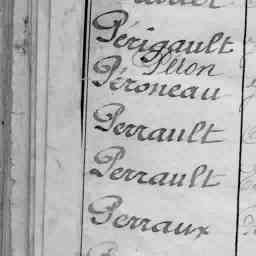 Périgault
Péron
Péroneau
Perrault
Perrault
Perraux